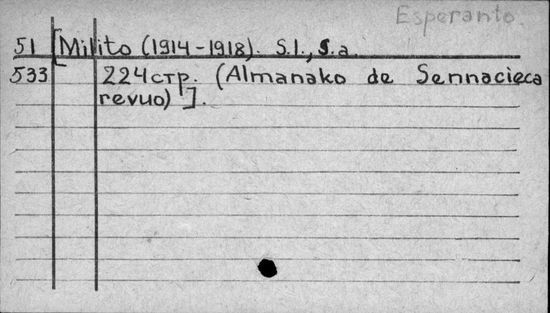 Esperanto.
51 [Milito (1914-1918). S.l., s.a.
533 224 стр. (Almanako de Sennacieca
revuo)].